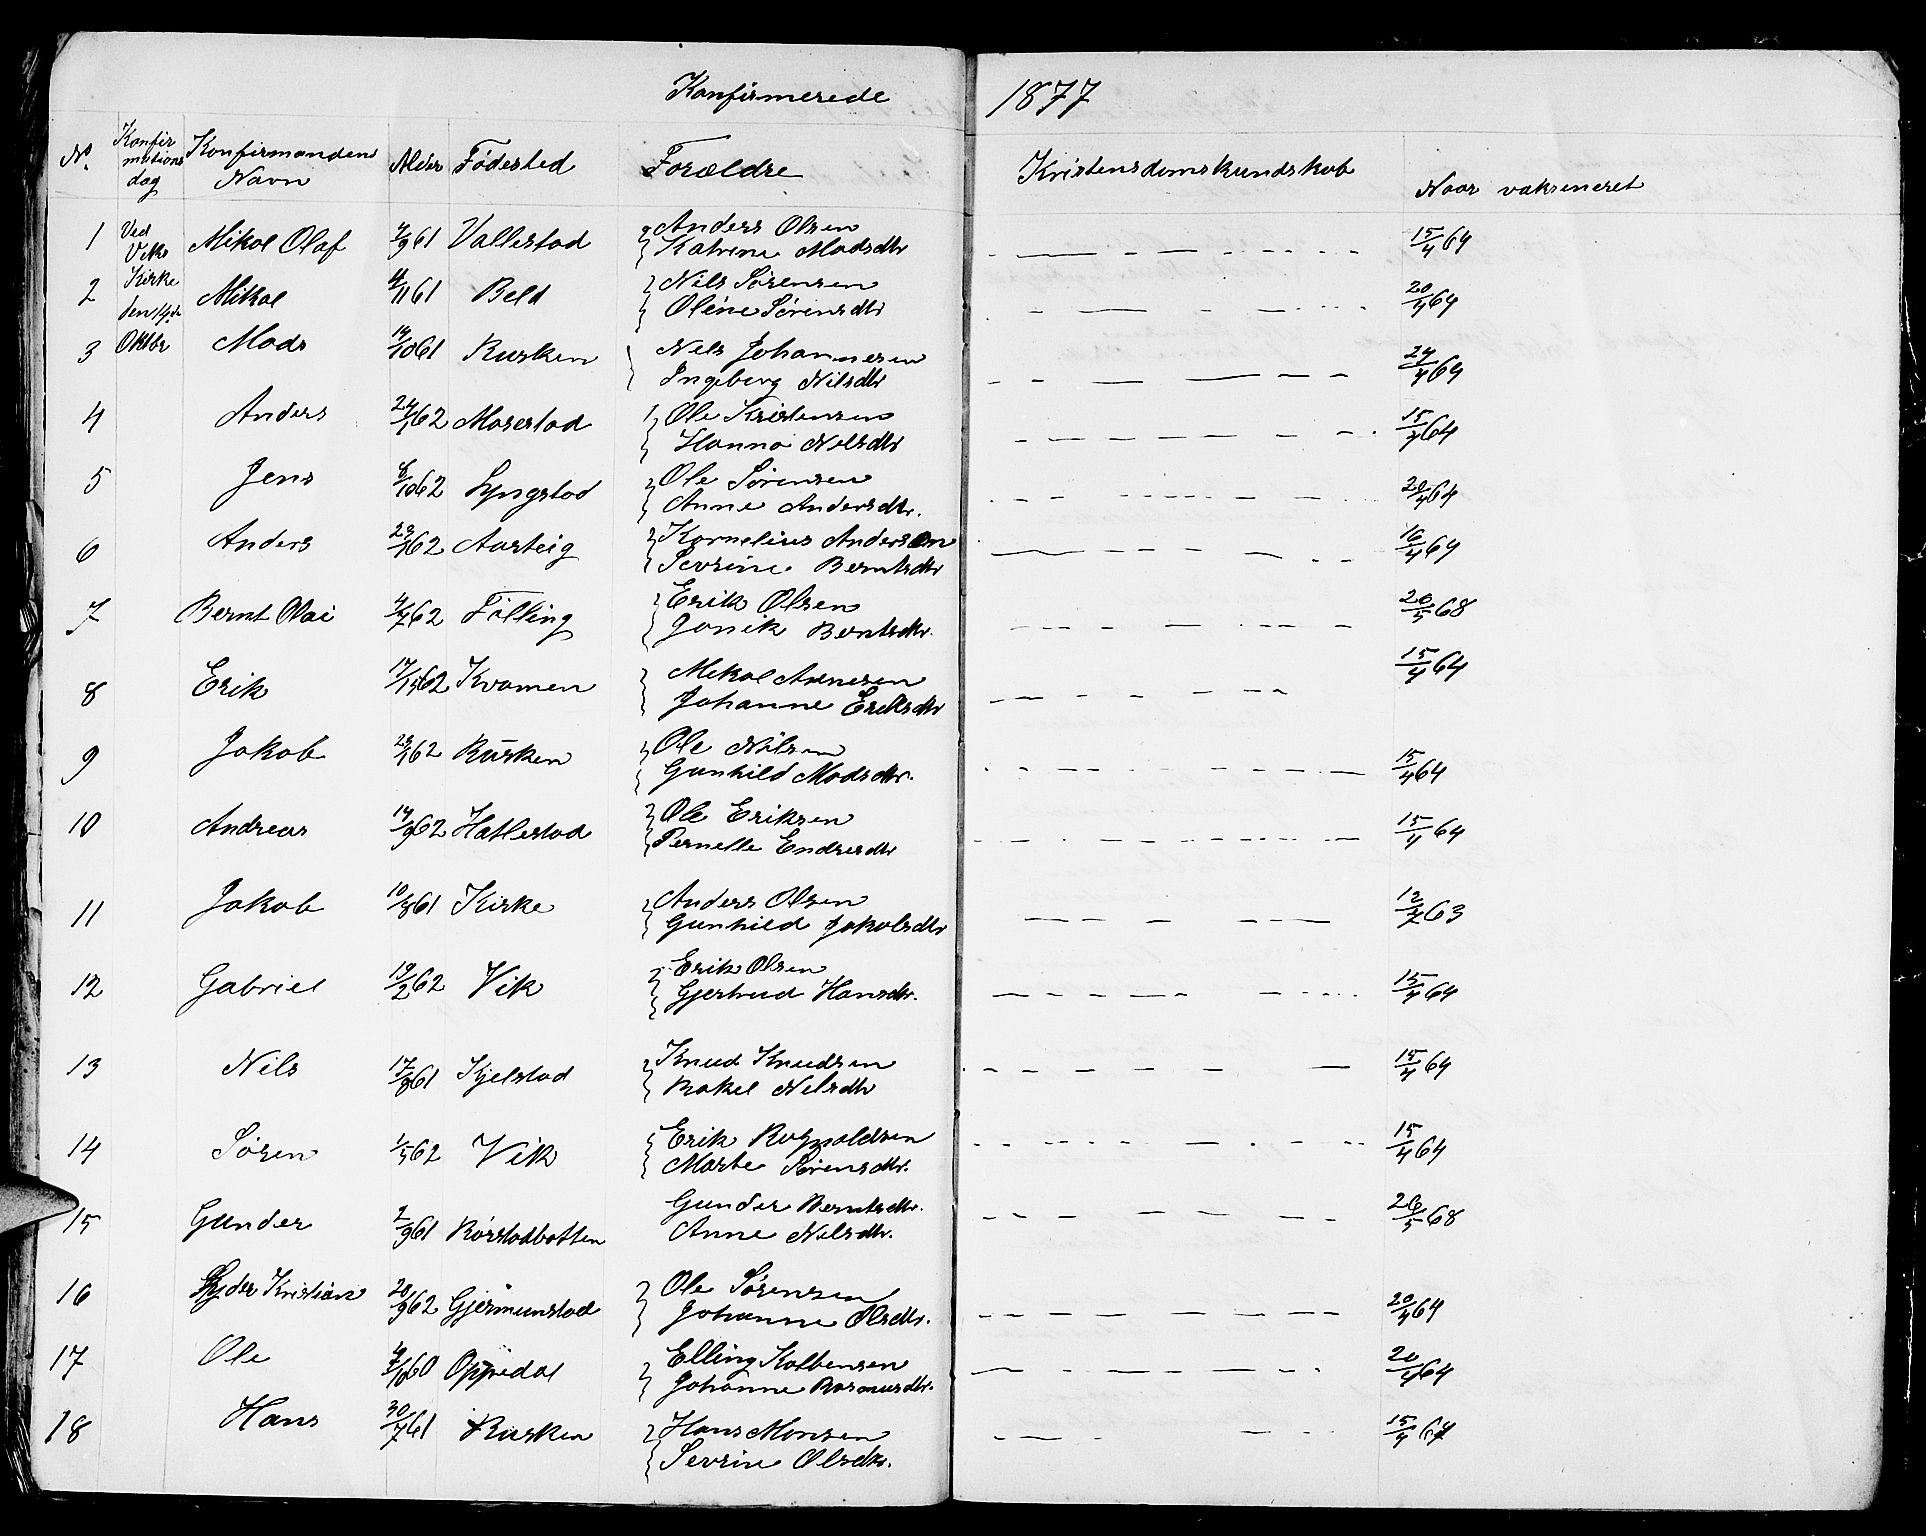 Konfirmerede 1877
No. Konfir mations dag Konfirmandens Navn Alder Fødested Forældre Kristensdomskundskab Naar vaksineret
1 Ved Viks Mikal Olaf 4/9 61 Vallestad Anders Olsen 15/4 64
Katrine Madsdtr
2 Kirke Mikal 4/11 61 Beld Nils Sørensen 20/4 64
den Oline Sørensdtr
3 Oktbr Mads 14/10 61 Rusken Nils Johannesen 24/4 64
Ingeborg Nilsdtr
4 Anders 24/1 62 Masestad Ole Kristensen 15/4 64
Hanna Nilsdtr
5 Jens 6/10 62 Lyngstad Ole Sørensen 20/4 64
Anne Andersdtr.
6 Anders 23/1 62 Aasteig Kornelius Andersen 16/4 64
Sevrine Berntsdtr
7 Bernt Olai 4/7 62 Følling Erik Olsen 20/5 68
Janik Berntsdtr.
8 Erik 62 Kvamen Mikal Annesen 15/4 64
Johanne Eriksdtr
9 Jakob 62 Rusken Ole Nilsen 15/4 64
Gunhild Madsdtr.
10 Andreas 14/9 62 Hatlestad Ole Eriksen 15/4 64
Pernelle Endresdtr
11 Jakob 10/8 61 Kirke Anders Olsen 63
Gunhild Jakobsdtr
12 Gabriel 19/2 62 Vik Erik Olsen 15/4 64
Gjertrud Hansdtr.
13 Nils 17/8 61 Kjelstad Knud Knudsen 15/4 64
Rakel Nilsdtr
14 Søren 1/5 62 Vik Erik Rognaldsen 15/4 64
Marte Sørensdtr.
15 Gunder 2/9 61 Rørstadbotten Gunder Berntsdtr. 26/5 68
Anne Nilsdtr.
16 Lyder Kristian 20/9 62 Gjermunstad Ole Sørensen 20/4 64
Johanne Olsdtr.
17 Ole 60 Oppedal Elling Kolbensen 20/4 64
Johanne Rasmusdtr.
18 Hans 30/7 61 Rusken Hans Monsen 15/4 64
Sevrine Olsdtr.